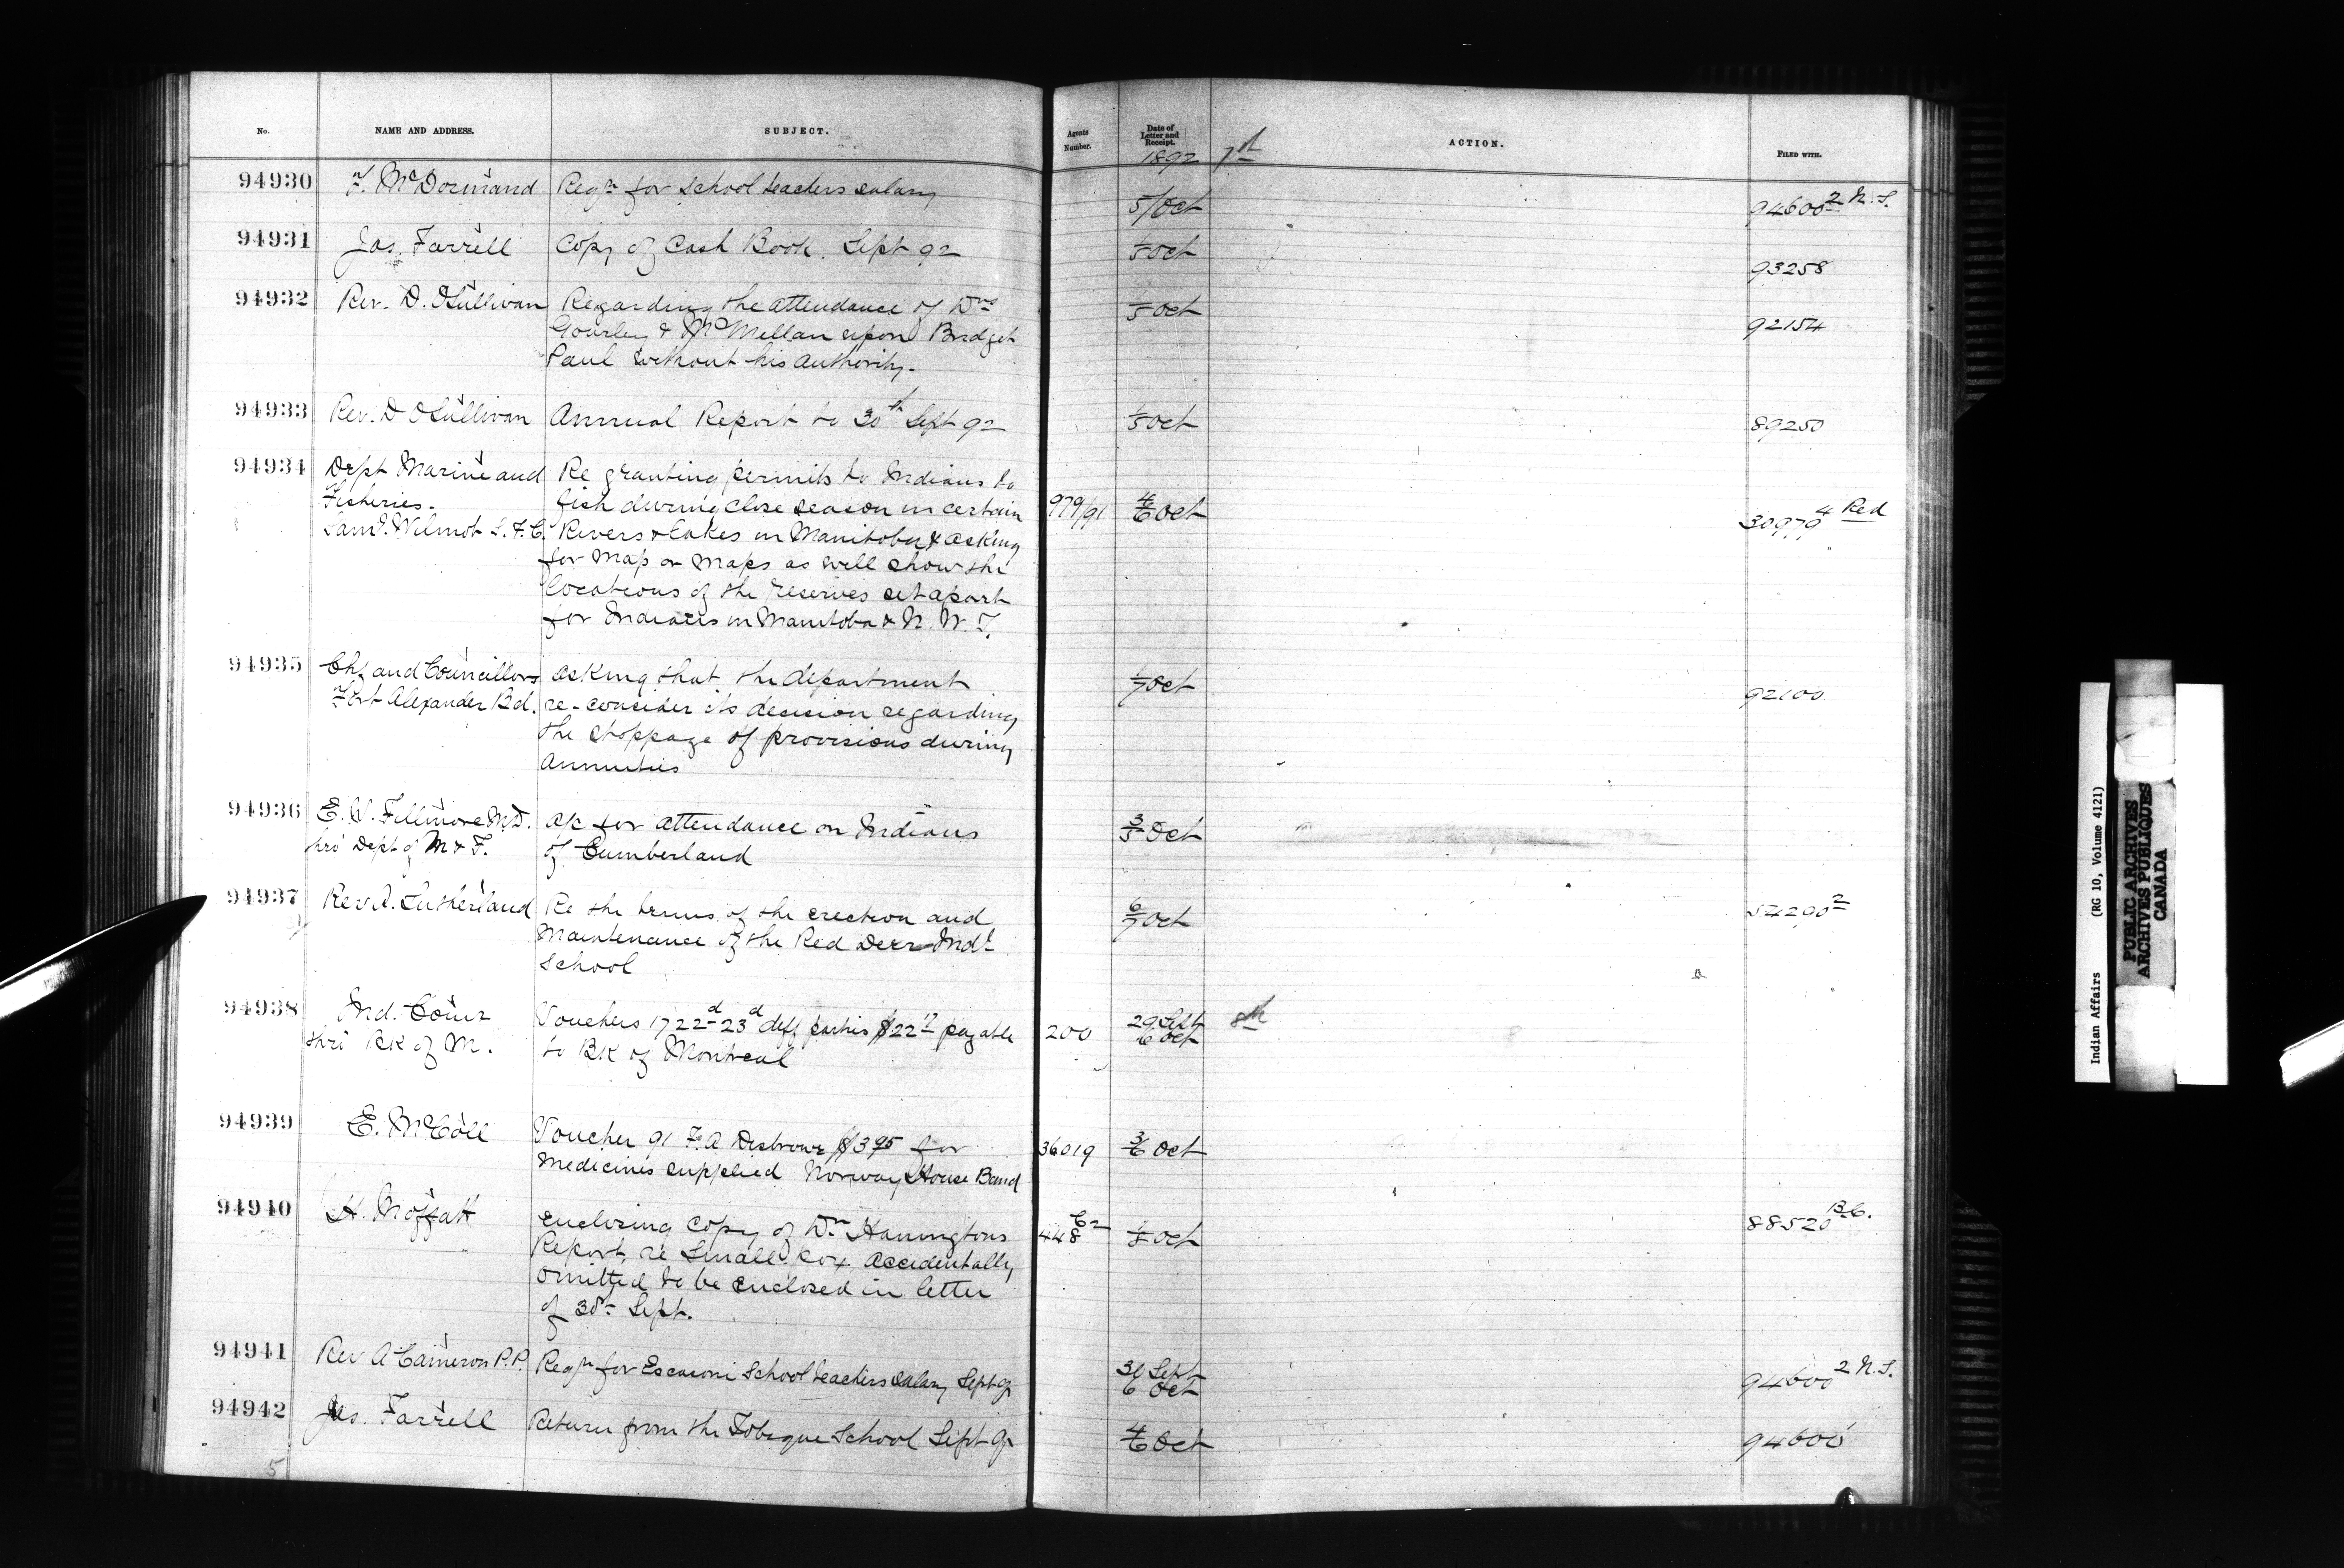 No.
NAME AND ADDRESS.
SUBJECT.
Agents Number.
Date of Letter and Receipt.
ACTION.
FILED WITH.
1892 7th
94930 F. McDormand Reqn for School teachers salary 5/Oct 94600-2 N.S.
94931 Jas. Farrell Copy of Cash Book. Sept 92 1/5 Oct 93258
94932 Rev. D. O'Sullivan Regarding the attendance of Drs 1/5 Oct 92154
Gourley & McMellan upon Bridget
Paul without his authority.
94933 Rev. D O'Sullivan Annual Report to 30th Sept 92 1/5 Oct 89250
94934 Dept Marine and Re granting permits to Indians to
Fisheries. fish during close season in certain 979/91 4/6 Oct 30979-4 Red
Saml. Wilmot S.F.C. Rivers & Lakes in Manitoba & asking
for Map or Maps as will show the
locations of the reserves set apart
for Indians in Manitoba & N.W.T.
94935 Chf and Councillors asking that the department 1/7 Oct 92100
Fort Alexander Bd. re-consider its decision regarding
the stoppage of provisions during
Annuities
94936 E. W. Fillmore M.D. a/c for attendance on Indians 3/5 Oct
thro' Dept of M & F. of Cumberland
94937 Rev A. Sutherland Re the terms of the erection and 6/7 Oct 54290-2
Maintenance of the Red Deer Indl
School
94938 Ind. Comr Vouchers 1722d-23d diff parties $22 17 payable 200 29 Sept 8th
thro' Bk of M. to Bk of Montreal 6 Oct
94939 E. McColl Voucher 91 F. A Disbrowe $3 95 for 36019 3/6 Oct
Medicines supplied Norway House Band
94940 H. Moffatt Enclosing Copy of Dr. Hanningtons 448 1/8 Oct 88520 B.C.
Report, re Small Pox, Accidentally
Omitted to be Enclosed in letter
of 30th Sept.
94941 Rev A Cameron P.P. Reqn for Escasoni School teachers salary Sept qr 30 Sept 94600-2 N.S.
6 Oct
94942 Jas. Farrell Return from the Tobique School Sept qr 4/6 Oct 94600
5
Indian Affairs (RG 10, Volume 4121)
PUBLIC ARCHIVES
ARCHIVES PUBLIQUES
CANADA